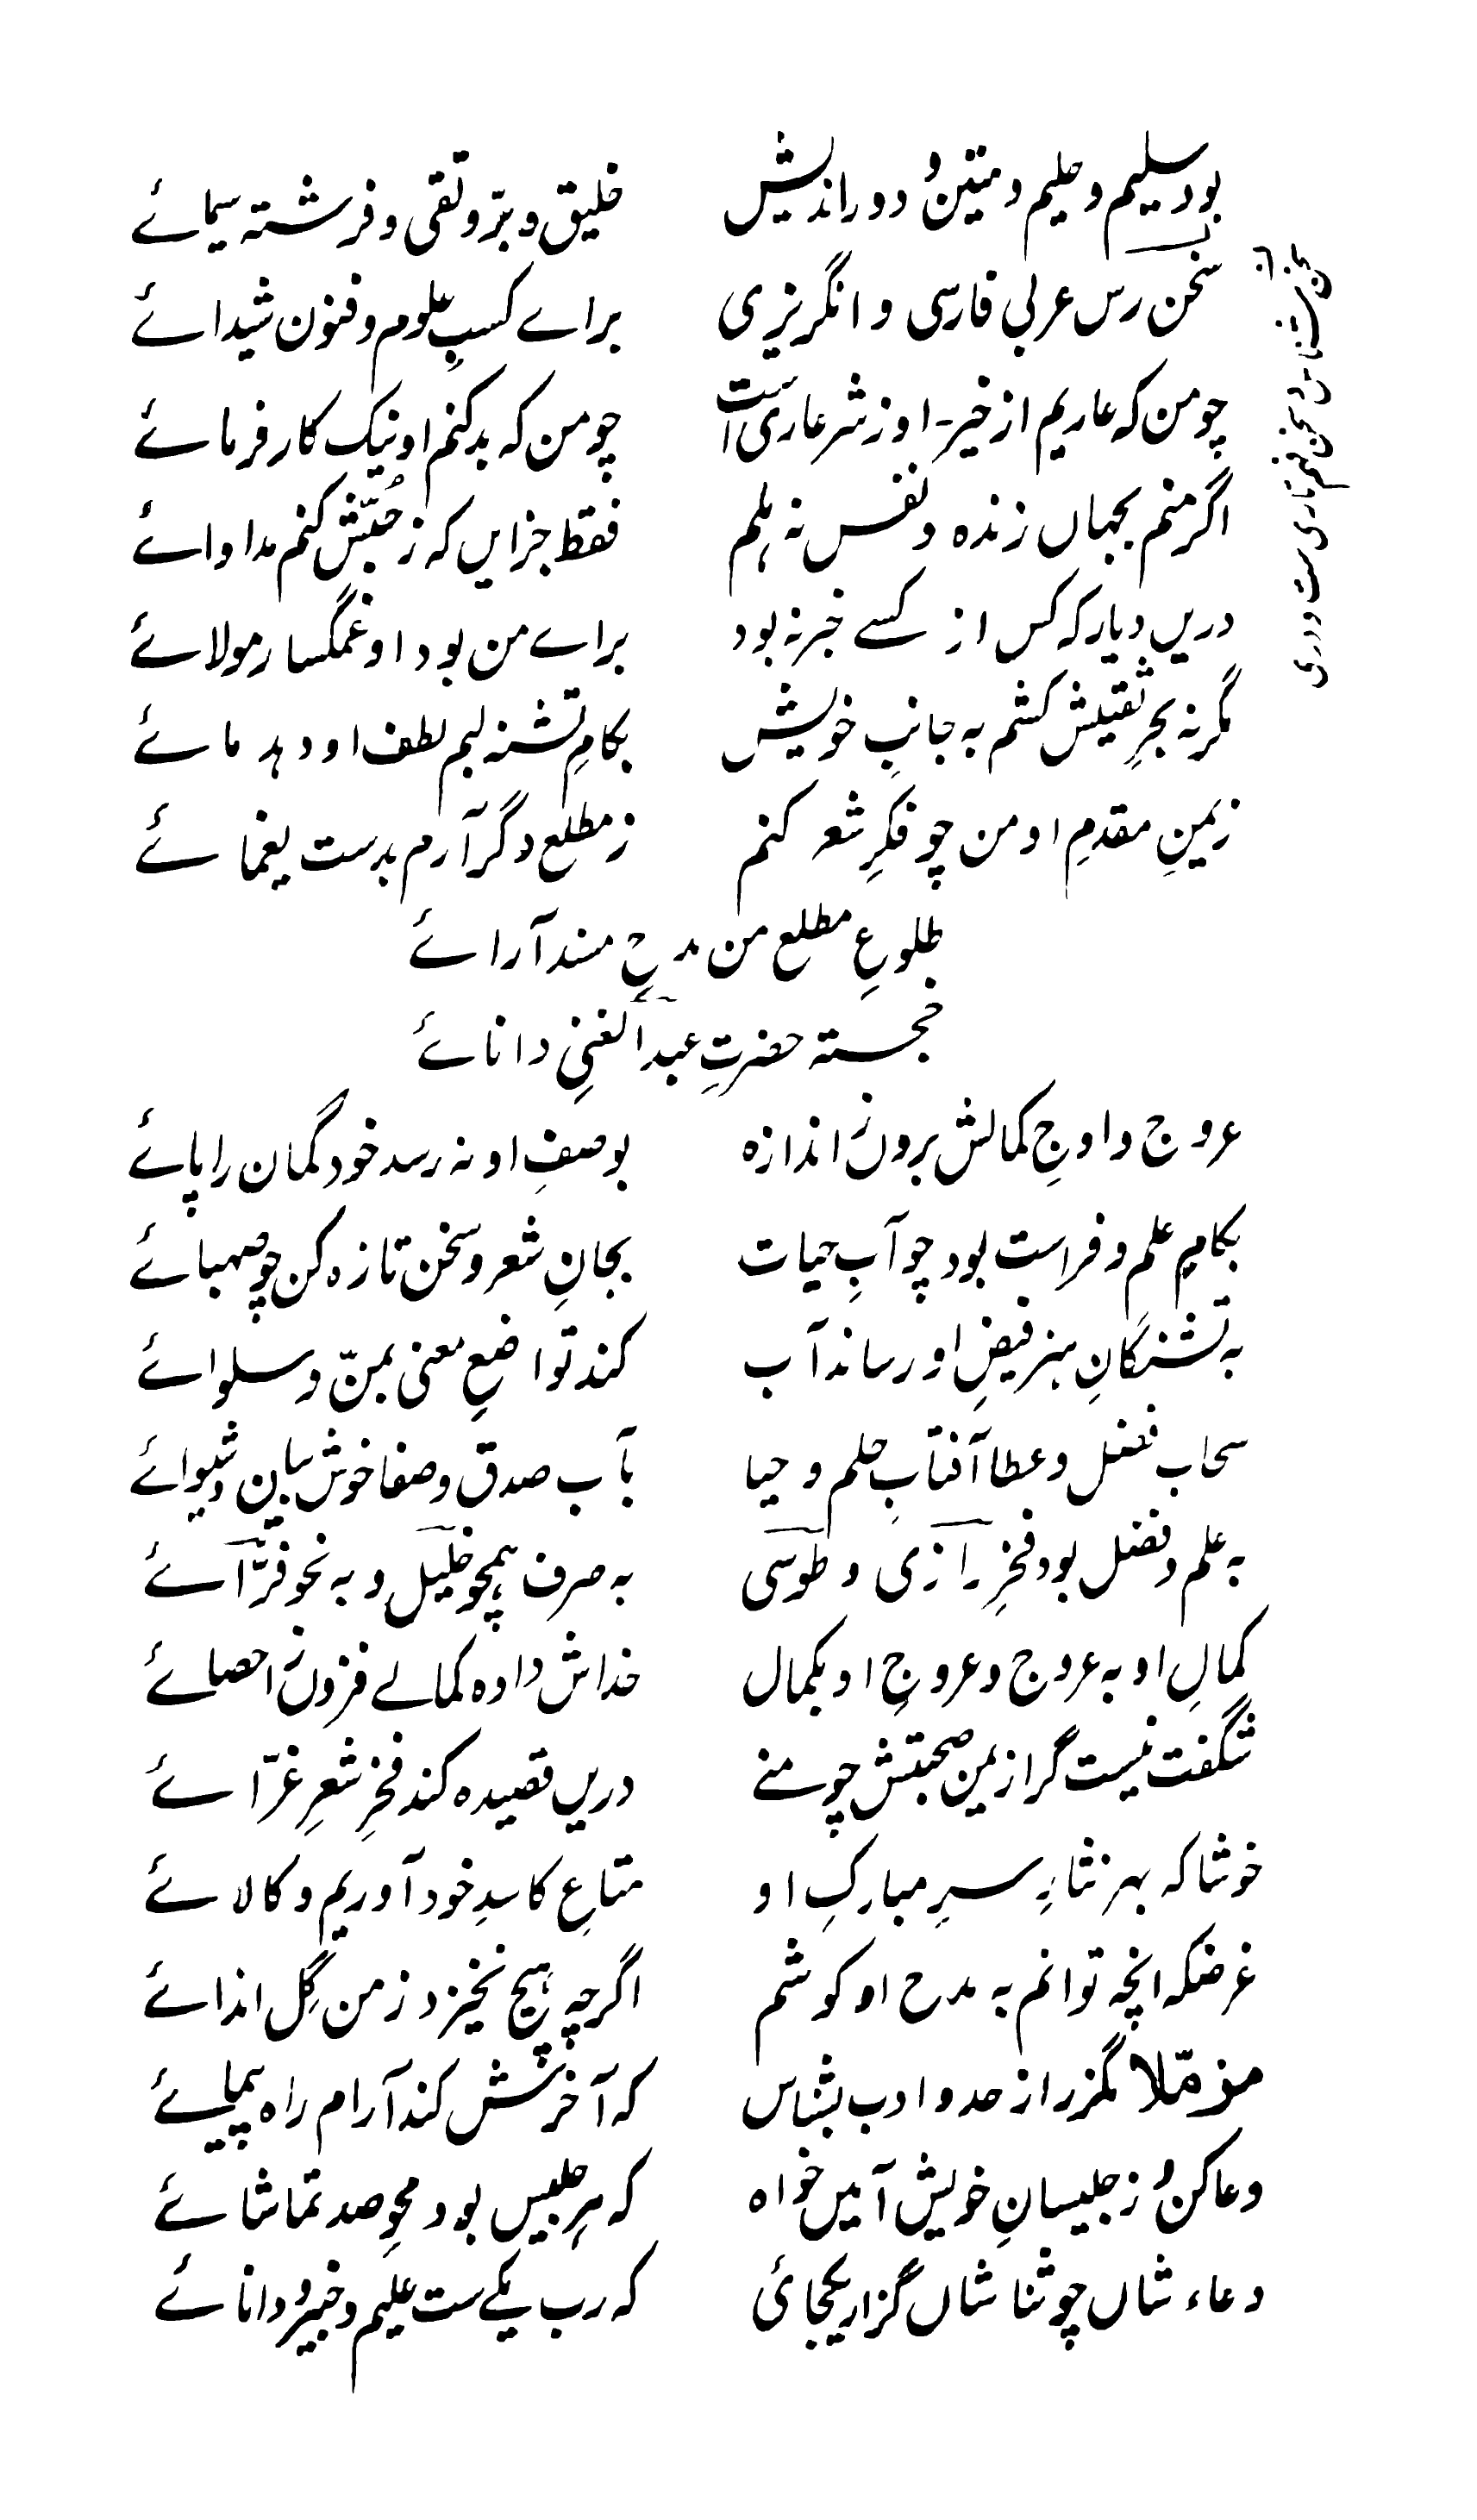 بود سلیم و حلیم و متین و دور اندیش خلیق و برّ و تقی و فرشته سیمائے
سخن رس عربی فارسی و انگریزی براے کسب علوم و فنون شیدائے
چو من که عاریم از خیر۔ او ز شر عاری است چو من که بد کنم او نیک کار فرمائے
اگر منم بجہاں زنده و نفس نه ہلم فقط جز ایں که ز حُبّش کنم مداوائے
دریں دیار که کس از کسے خبر نه بود براے من بود او غمگسار مولائے
گر نه بجرِّ ثقیلش کشم به جانبِ خویش بکامِ تشنه لبم لطف او دہد مائے
زمینِ مقدمِ او من چو فکرِ شعر کنم ز مطلعِ دگر آرم بدست یغمائے
طلوعِ مطلع من مدحِ مسند آرائے
خجسته حضرتِ عبد الغنیِ دانائے
عروج و اوجِ کمالش برون ز اندازه بوصفِ او نه رسد خود گمان را پائے
بکامِ علم و فراست بود چو آبِ حیات بجانِ شعر و سخن تازه کن چو صهبائے
به تشنگانِ ہنر فیضِ او رساند آب کند تواضعِ معنی بمنّ و سلوائے
سحاب فضل و عطا آفتابِ حلم و حیا بآب صدق و صفا خوش بیان و شیوائے
به علم و فضل بود فخرِ رازی و طوسی به صرف ہمچو خلیل و به نحو فرّائے
کمالِ او به عروج و عروجِ او بکمال خداش داده کمالے فزون ز احصائے
شگفت نیست گر از یمن صحبتش چو منے دریں قصیده کند فخرِ شعرِ غرّائے
خوشا که بهرِ نثارِ سرِ مبارکِ او متاعِ کاسدِ خود آوریم و کالائے
غرضکه انچه توانم به مدح او کوشم اگرچه ہیچ نخیزد ز من گِل اندائے
مزمّلا مگزر از حد و ادب بشناس که آخرشش کند آرام راه پیمائے
دعا کن و ز جلیسانِ خویش آمیں خواه که ہر جلیس بود محوِ صد تماشائے
دعاء شاں چو ثنا شاں گزار یکجائی که رب یکے ست علیم و خبیر و دانائے